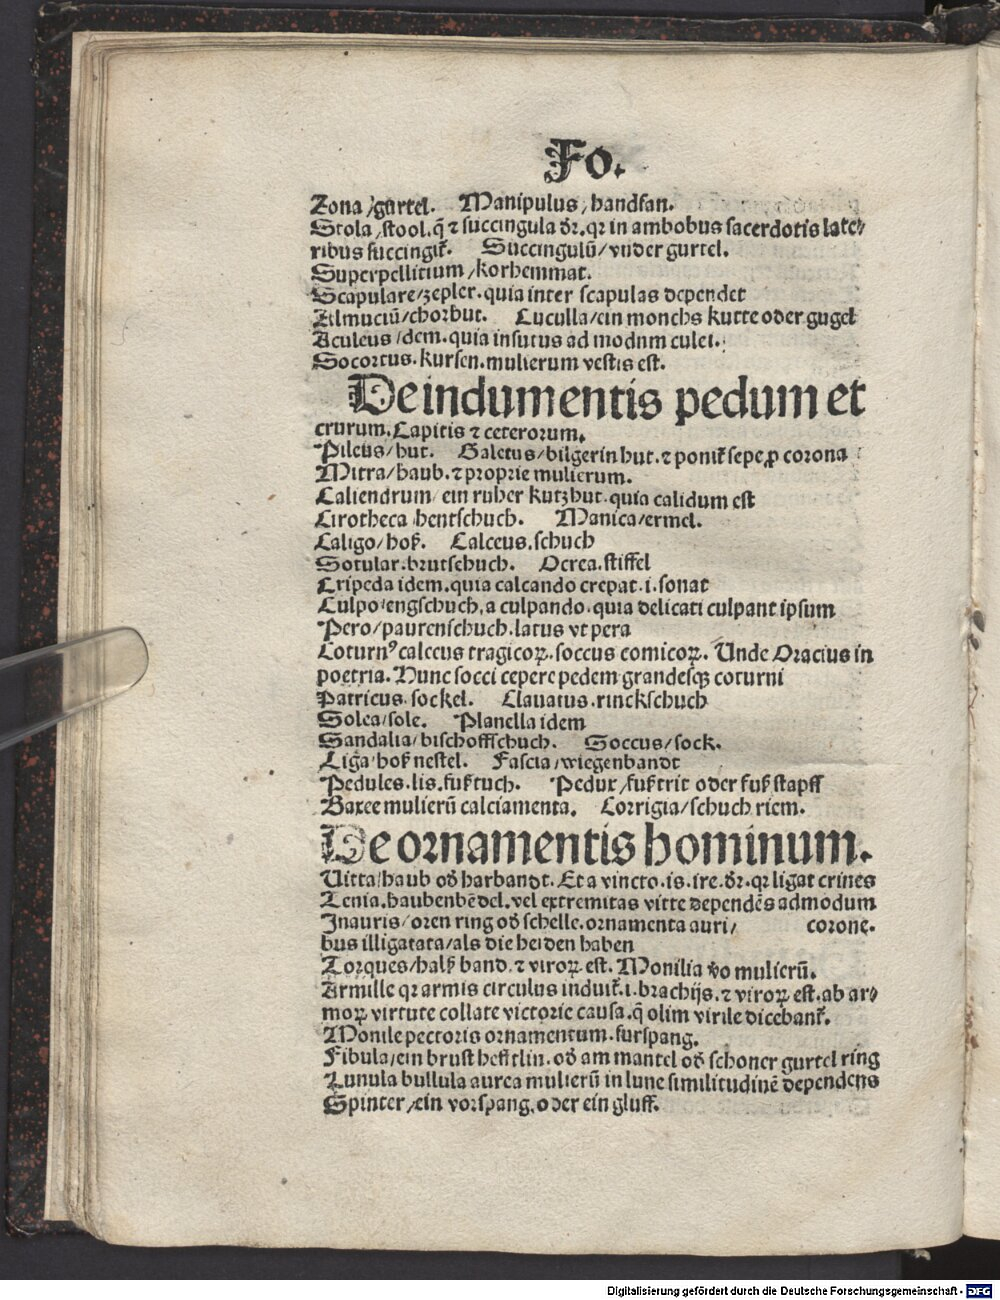 Fo.
Zona /gurtel. Manipulus / handfan.
Stola /stool. q̄ ⁊ succingula dr̄. qꝛ in ambobus sacerdotis late⸗
ribus succingit̄. Succingulū / vnder gurtel.
Superpellitium /korhemmat.
Scapulare/zepler. quia inter scapulas dependet
Almuciū/chorhut. Cuculla/ein monchs kutte oder gugel
Aculeus /dem. quia insutus ad modum culei.
Socortus. kursen. mulierum vestis est.
De indumentis pedum et
crurum. Capitis ⁊ ceterorum.
Pileus/hut. Galetus/bilgerin hut. ⁊ ponit̄ sepe ꝓ corona
Mitra/haub. ⁊ proprie mulierum.
Caliendrum/ ein ruher kutzhut. quia calidum est
Cirotheca hentschuch. Manica/ermel.
Caligo/hoß. Calceus. schuch
Sotular. brutschuch. Ocrea. stiffel
Cripeda idem. quia calcando crepat. i. sonat
Culpo/engschuch. a culpando. quia delicati culpant ipsum
Pero/paurenschuch. latus vt pera
Coturnꝰ calceus tragicoꝝ. soccus comicoꝝ. Unde Oracius in
poetria. Hunc socci cepere pedem grandesqꝫ coturni
Patricus. sockel. Clauatus. rinckschuch
Solea/sole. Planella idem
Sandalia/bischoffschuch. Soccus/sock.
Liga/hoß nestel. Fascia/wiegenbandt
Pedules. lis. fußtuch. Pedux/fußtrit oder fuß stapff
Baxee mulierū calciamenta. Corrigia/schuch riem.
De ornamentis hominum.
Uitta/haub od̄ harbandt. Et a vincto. is. ire. dr̄. qꝛ ligat crines
Tenia. haubenbēdel. vel extremitas vitte dependēs admodum
Inauris/ oren ring od̄ schelle. ornamenta auri/ corone.
bus illigatata/als die heiden haben
Torques/halß band. ⁊ viroꝝ est. Monilia v̄o mulierū.
Armille qꝛ armis circulus induit̄. i. brachijs. ⁊ viroꝝ est. ab ar⸗
moꝝ virtute collate victorie causa. q̄ olim virile dicebant̄.
Monile pectoris ornamentum. furspang.
Fibula/ein brust hefftlin. od̄ am mantel od̄ schoner gurtel ring
Lunula bullula aurea mulierū in lune similitudinē dependens
Spinter/ein vorspang. oder ein gluff.
Digitalisierung gefördert durch die Deutsche Forschungsgemeinschaft - DFG